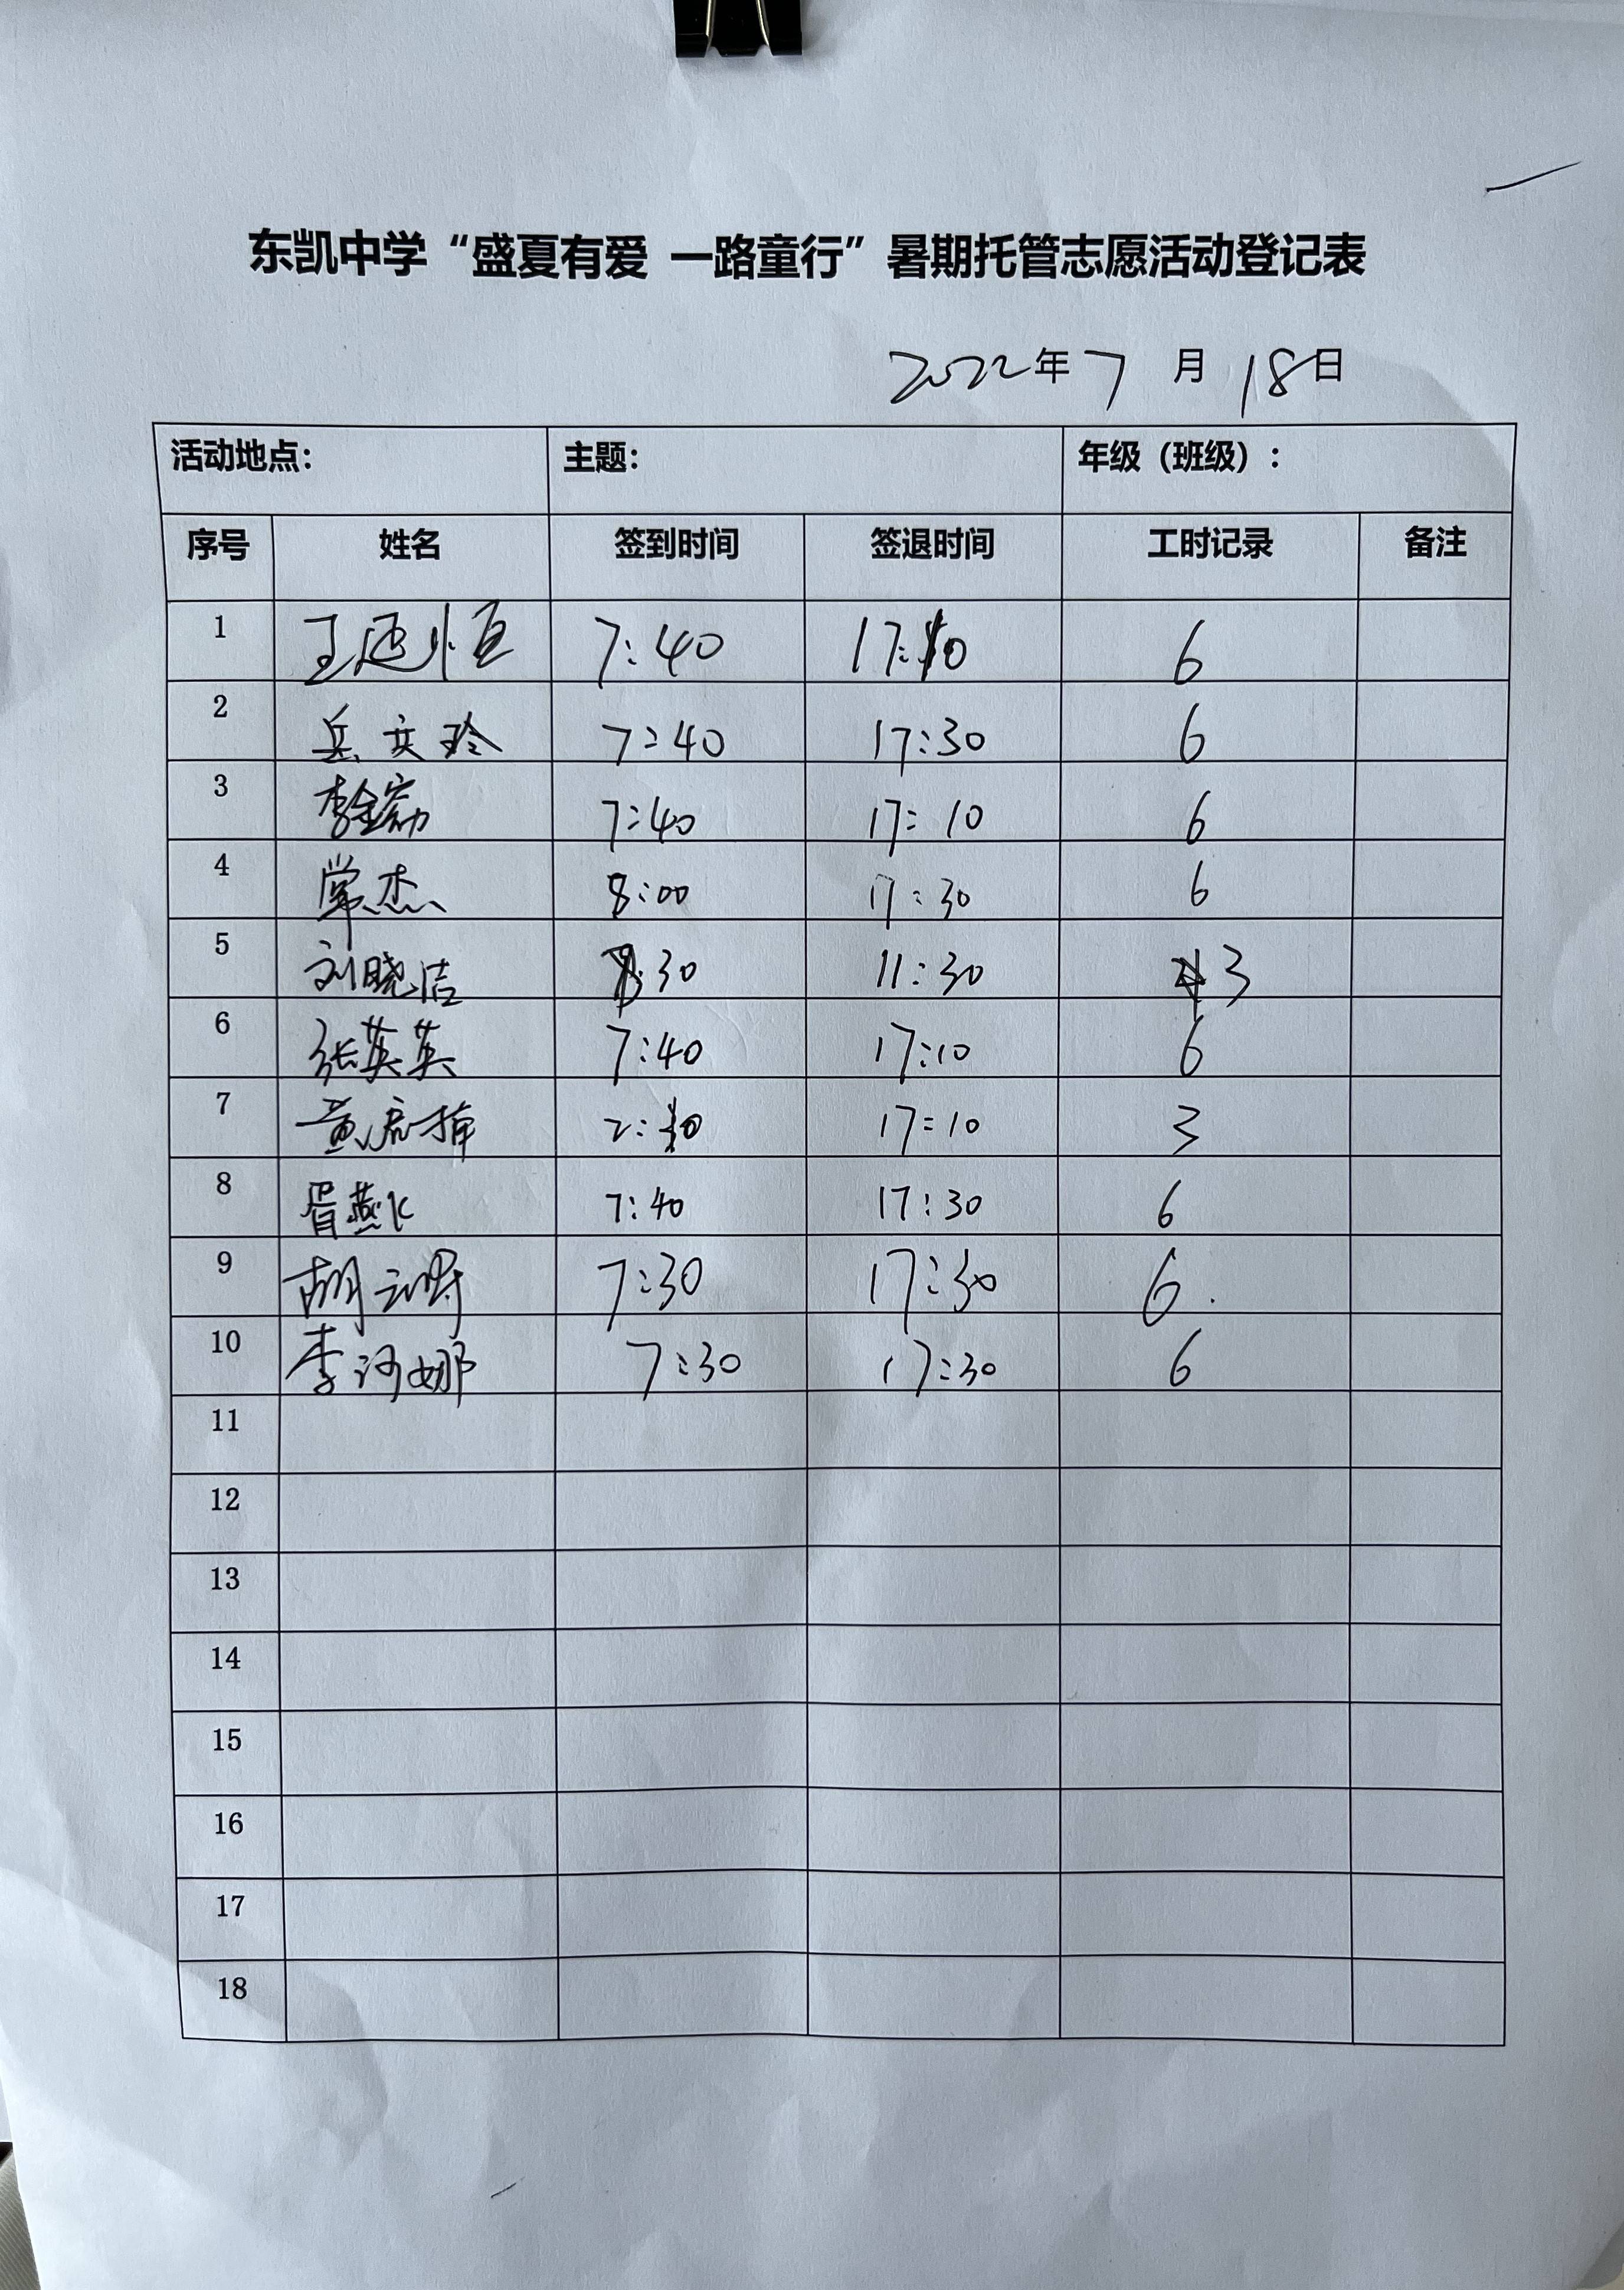 东凯中学“盛夏有爱 一路童行”暑期托管志愿活动登记表
2022年7月18日
活动地点： 主题： 年级（班级）：
序号 姓名 签到时间 签退时间 工时记录 备注
1 王延恒 7:40 17:10 6
2 岳 玲 7:40 17:30 6
3 李金 7:40 17:10 6
4 常杰 8:00 17:30 6
5 刘晓洁 :30 11:30 3
6 张英英 7:40 17:10 6
7 黄 2: 17:10 3
8 胥燕 7:40 17:30 6
9 胡 7:30 17:30 6.
10 李 娜 7:30 17:30 6
11
12
13
14
15
16
17
18